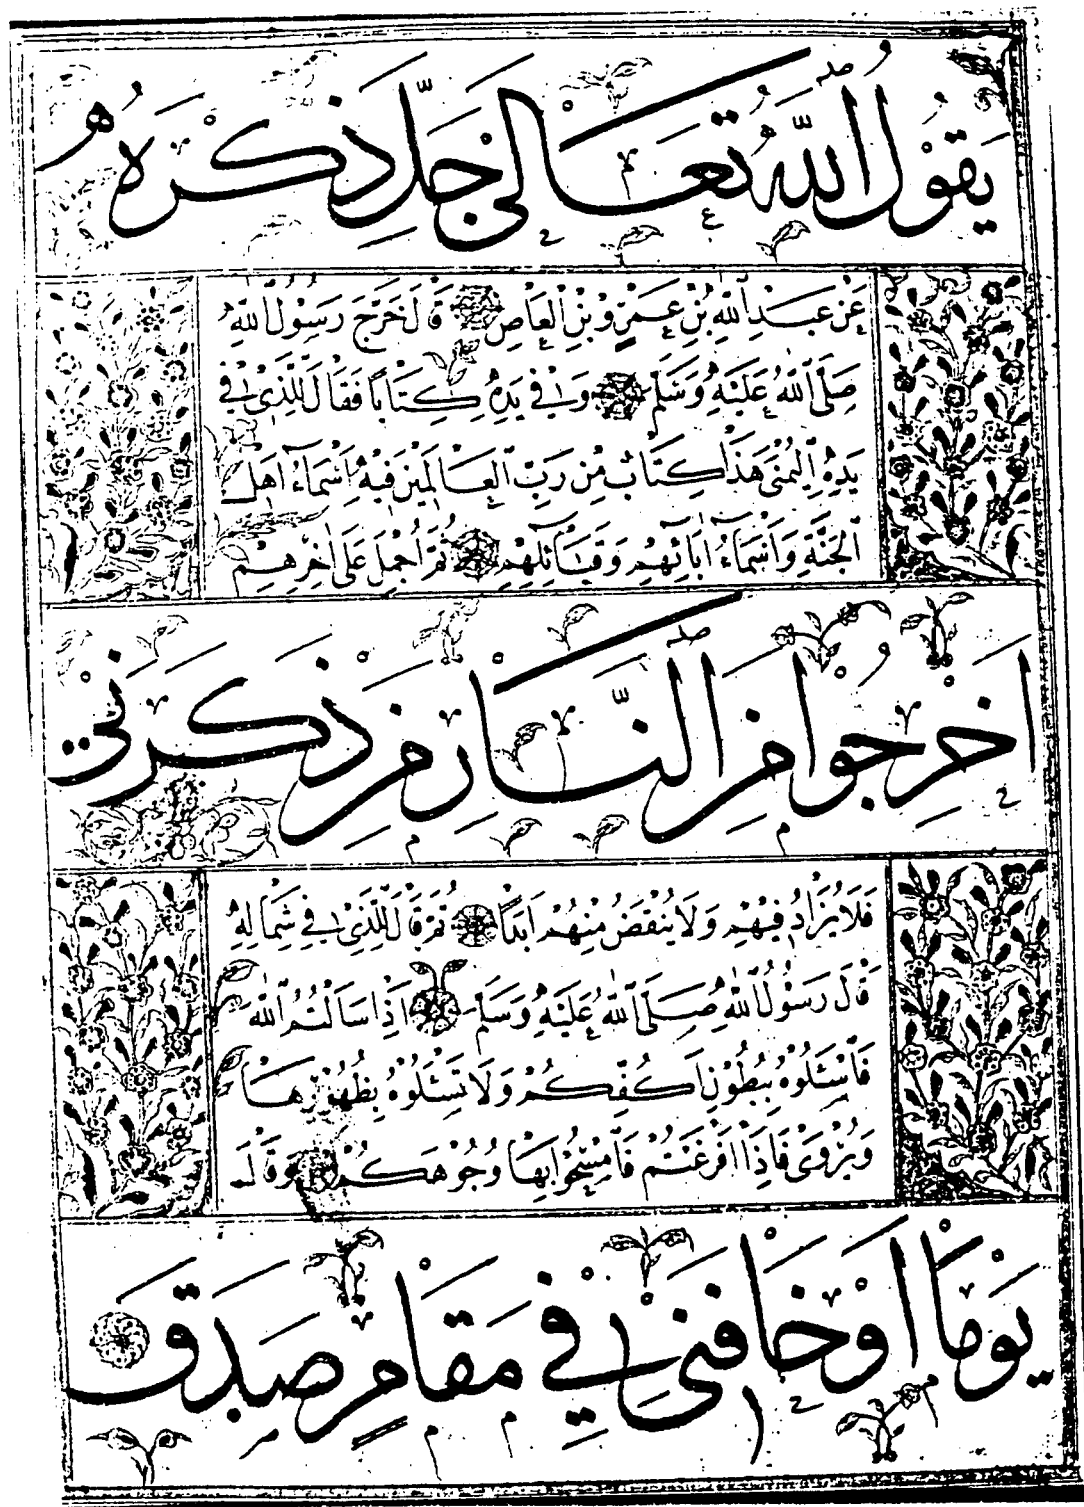 يَقُولُ اللّٰهُ تَعَالٰى جَلَّ ذِكْرُهُ
عَنْ عَبْدِ اللّٰهِ بْنِ عَمْرِو بْنِ الْعَاصِ قَالَ خَرَجَ رَسُولُ اللّٰهِ
صَلَّى اللّٰهُ عَلَيْهِ وَسَلَّمَ وَفِي يَدِهِ كِتَابًا فَقَالَ لِلَّذِي فِي
يَدِهِ الْيُمْنٰى هٰذَا كِتَابٌ مِنْ رَبِّ الْعَالَمِينَ فِيهِ أَسْمَاءُ أَهْلِ
الْجَنَّةِ وَأَسْمَاءُ اٰبَائِهِمْ وَقَبَائِلِهِمْ ثُمَّ أُجْمِلَ عَلٰى اٰخِرِهِمْ
اَخْرِجُوا مِنَ النَّارِ مَنْ ذَكَرَنِي
فَلَا يُزَادُ فِيهِمْ وَلَا يُنْقَصُ مِنْهُمْ أَبَدًا ثُمَّ قَالَ لِلَّذِي فِي شِمَالِهِ
قَالَ رَسُولُ اللّٰهِ صَلَّى اللّٰهُ عَلَيْهِ وَسَلَّمَ اِذَا سَأَلْتُمُ اللّٰهَ
فَاسْئَلُوهُ بِبُطُونِ اَكُفِّكُمْ وَلَا تَسْئَلُوهُ بِظُهُورِهَا
وَيُرْوٰى فَاِذَا افَرَغْتُمْ فَامْسَحُوا بِهَا وُجُوهَكُمْ وَقَالَ
يَوْمًا اَوْ خَافَنِي فِي مَقَامِ صِدْقٍ